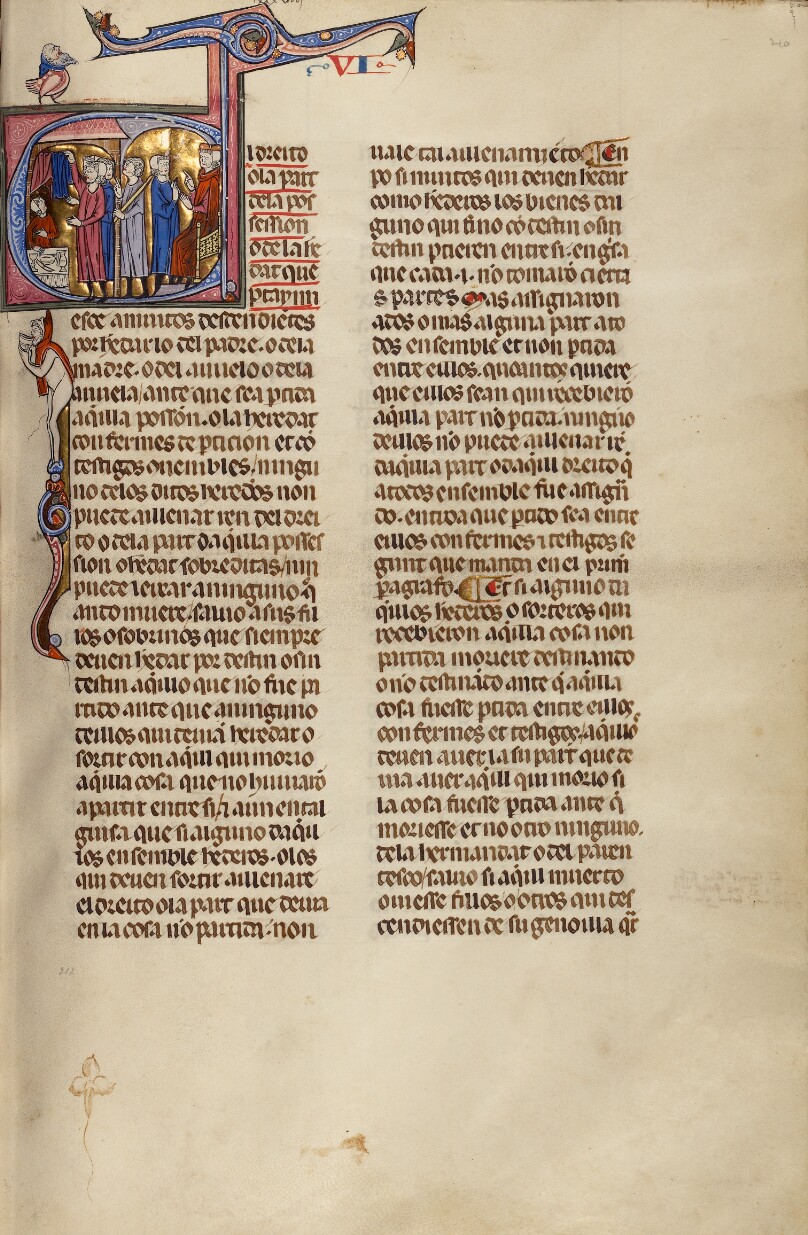 VI
l dreito
o la part
de la pos
session
o de la he
dat que
ptaym
esce a muitos descendientes
por hedario del padre. o de la
madre. o del auuelo o de la
auuela ante que sea ptida
aq̃illa possõn. o la heredat
con fermes de pticion et cõ
testigos onembles, ningu
no de los ditos herederos non
puede aillenar ren del drei
to o de la part daq̃illa posses
sion o hedat sobreditas, nin
puede lexar a ninguno q̃
ando muere, saluo a sus fi
los o sobrinos que siempre
deuen hedar por destin o sin
destin aq̃illo que no fue pa
rtido ante que a ninguno
deillos qui deuia heredar o
sortir con aq̃ill qui morio
aq̃illa cosa que no huuiarõ
a partir entre si, & aun en tal
guisa que si alguno daq̃il
los ensemble hederos. o los
qui deuen sortir aillenare
el dreito o la part que deuia
en la cosa nõ partida, non
uale tal aillenamiẽto. En
po si muitos qui deuen hedar
como hederos los bienes dal
guno qui fino cõ destin o sin
destin ptieren entre si. en g̃sa
que cada .i. nõ tomarõ cierta
s partes Mas assignaron
a dos o mas alguna part a to
dos ensemble et non ptida
entre eillos. quantos quiere
que eillos sean qui recebierõ
aq̃illa part nõ ptida. ninguno
deillos nõ puede aillenar rẽ
daq̃illa part o daq̃ill dreito q̃
a todos ensemble fue assigñ
do. entroa que ptido sea entre
eillos con fermes & testigos se
gunt que manda en el prim̃
paragrafo. Et si alguno da
q̃illos hederos o sorteros qui
recebieron aq̃illa cosa non
partida moriere destinando
o no destinãdo ante q̃ aq̃illa
cosa fuesse ptida entre eillos,
con fermes et testigos, aq̃illo
deuen auer la su part que de
uia auer aq̃ill qui morio si
la cosa fuesse ptida ante q̃
moriesse et no otro ninguno.
de la hermandat o del paren
tesco, saluo si aq̃ill muerto
ouiesse fillos o otros qui des
cendiessen de su genoilla q̃r
212
210